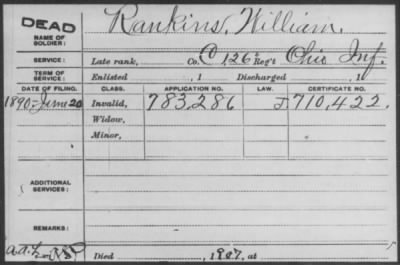 DEAD
NAME OF SOLDIER:
Rankins, William.
SERVICE:
Late rank, Co. C, 126 Reg't Ohio Inf.
TERM OF SERVICE:
Enlisted , 1 Discharged , 1
DATE OF FILING. CLASS. APPLICATION NO. LAW. CERTIFICATE NO.
1890-June 20 Invalid, 783,286 J 710,422.
Widow,
Minor,
ADDITIONAL SERVICES:
REMARKS:
Died , 1907, at